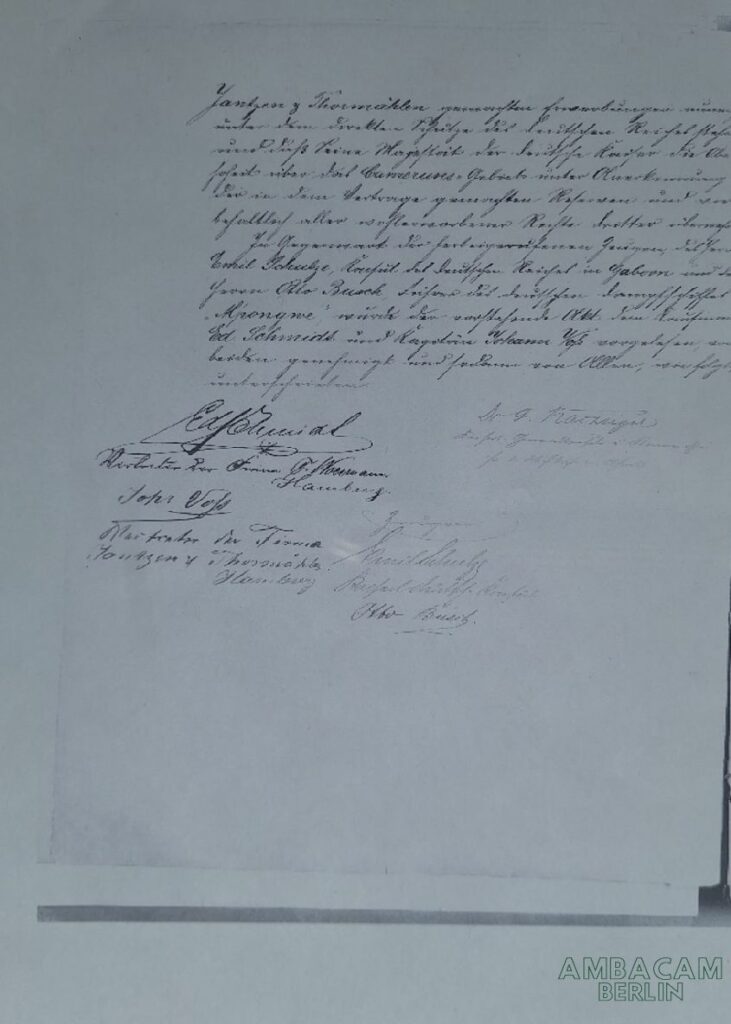 Jantzen & Thormählen gemachten Erwerbungen nunm
unter dem direkten Schutze des deutschen Reiches steh
und daß Seine Majestät der deutsche Kaiser die Obe
hoheit über das Cameruns-Gebiet unter Anerkennung
der in dem Vertrage gemachten Reserven und vor
behaltlich aller wohlerworbener Rechte dritter übernehm
In Gegenwart der herbeigerufenen Zeugen, des Herrn
Emil Schulze, Konsul des deutschen Reiches in Gaboon und de
Herrn Otto Busch, Führer des deutschen Dampfschiffes
„Mpongwe“ wurde der vorstehende Akt dem Kaufmann
Ed. Schmidt und Kapitän Johann Voß vorgelesen, von
beiden genehmigt und sodann von Allen, wie folgt
unterschrieben.
Ed Schmidt
Vertreter der Firma C. Woermann
Hamburg.
Joh. Voß
Vertreter der Firma
Jantzen & Thormählen
Hamburg
Dr. G. Nachtigal
Zeugen
Emil Schulze
Konsul
Otto Busch.
AMBACAM
BERLIN